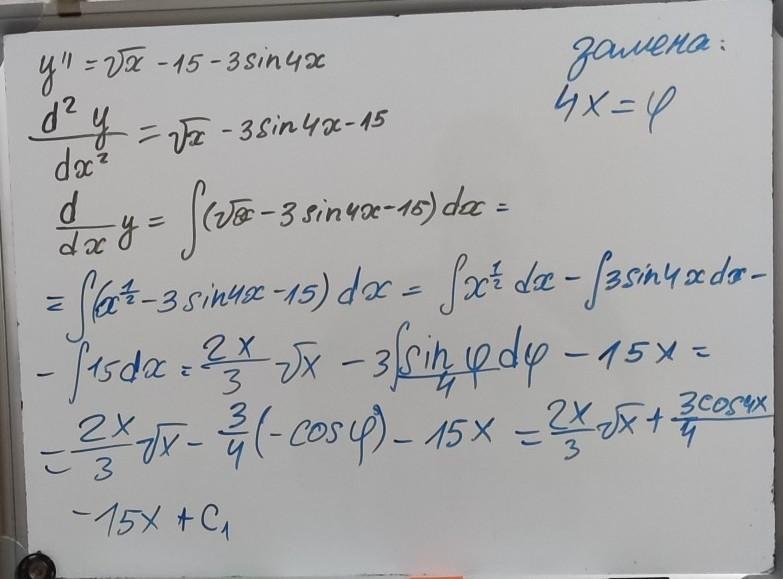 y'' = √x - 15 - 3sin4x
замена:
4x = φ
d²y/dx² = √x - 3sin4x - 15
d/dx y = ∫(√x - 3sin4x - 15) dx =
= ∫(x^(1/2) - 3sin4x - 15) dx = ∫x^(1/2) dx - ∫3sin4x dx -
- ∫15dx = 2x/3 √x - 3∫ sinφ/4 dφ - 15x =
= 2x/3 √x - 3/4 (-cosφ) - 15x = 2x/3 √x + 3cos4x/4
- 15x + C₁